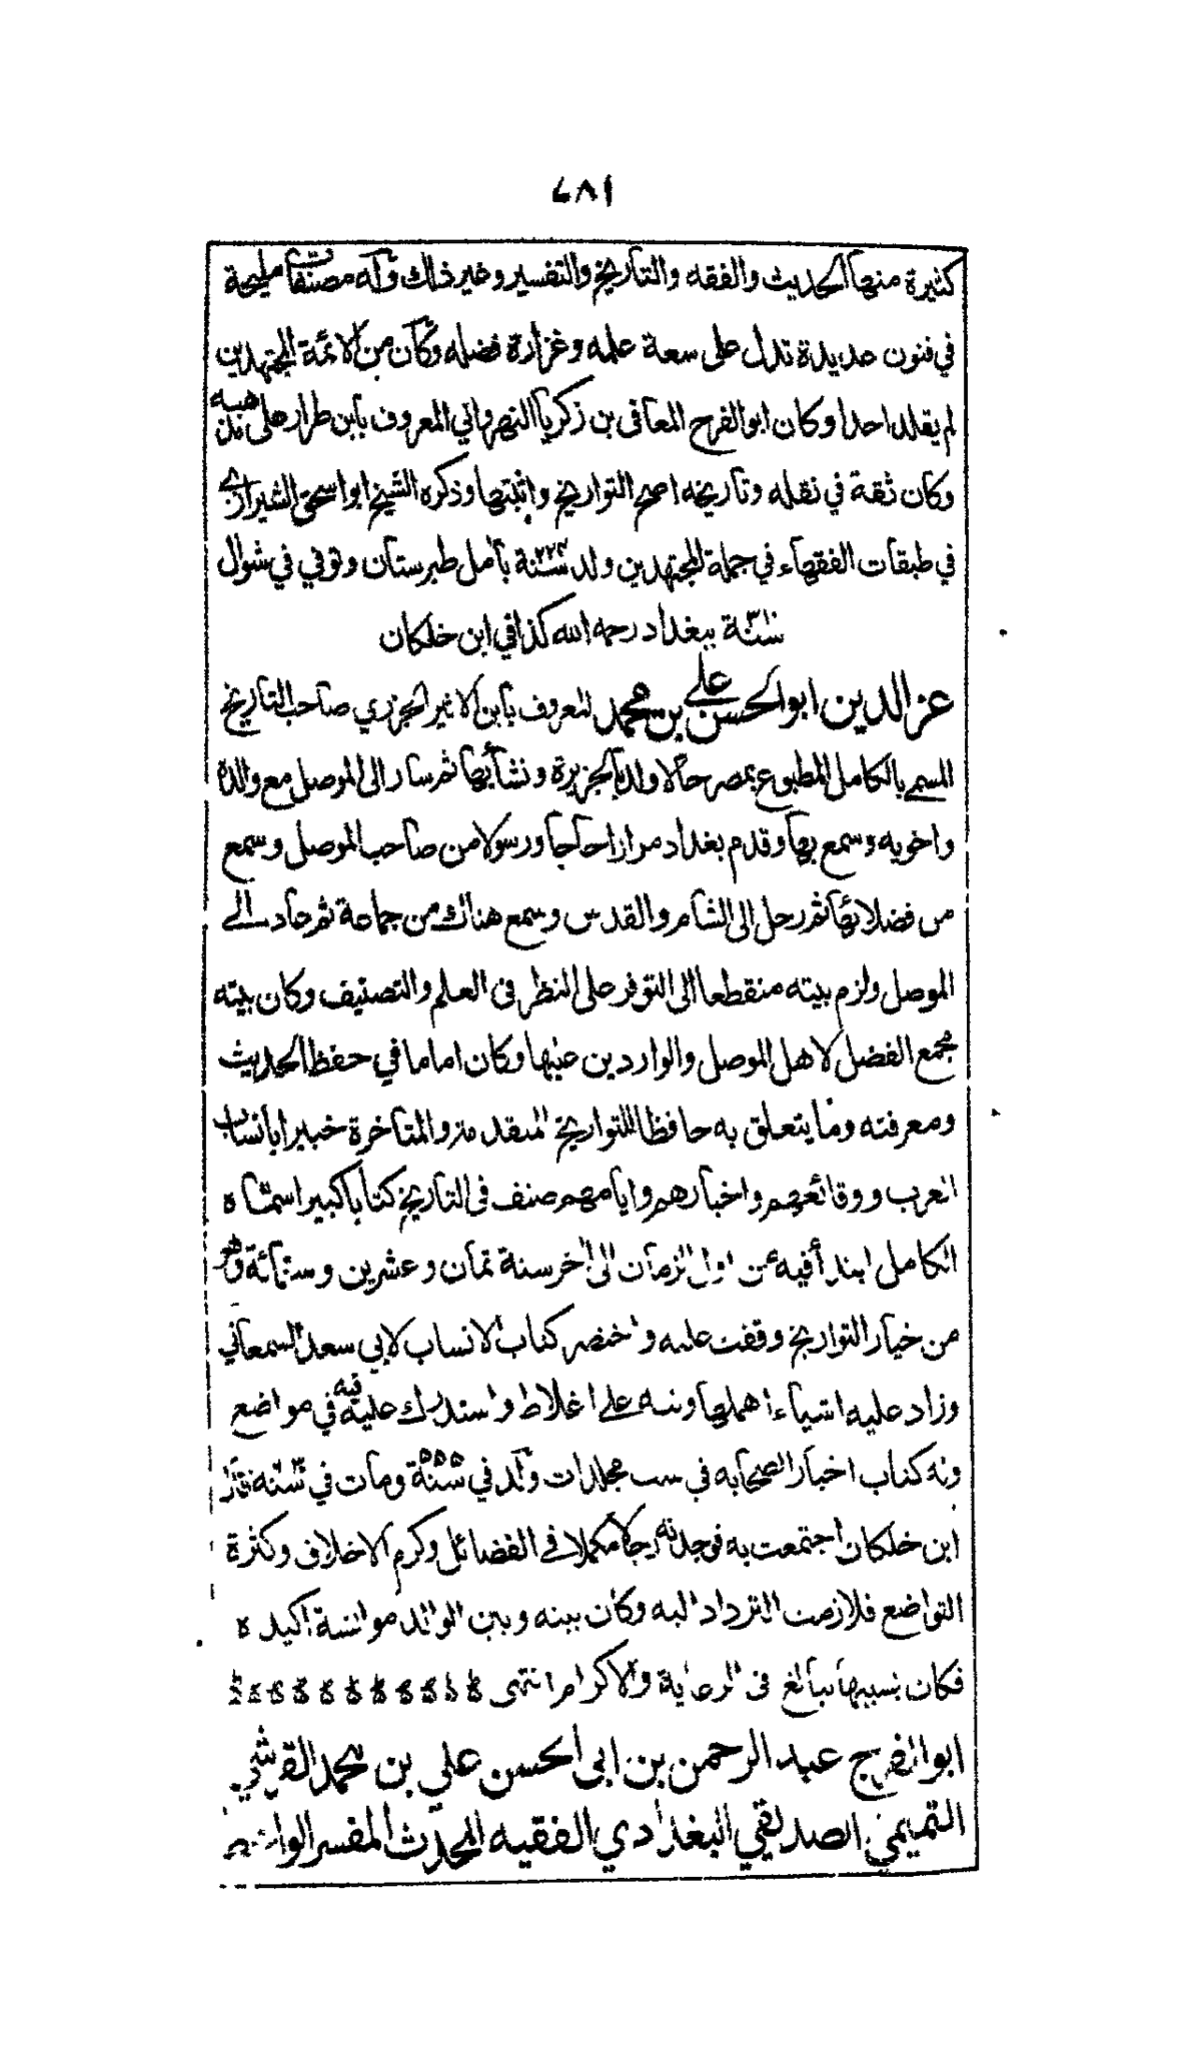 ٤٨١
كثيرة منها الحديث والفقه والتاريخ والتفسير وغير ذلك وله مصنفات مليحة
في فنون عديدة تدل على سعة علمه وغزارة فضله وكان من الائمة المجتهدين
لم يقلد احدا وكان ابو الفرج المعافى بن زكريا النهرواني المعروف بابن طرار على مذهبه
وكان ثقة في نقله وتاريخه اصح التواريخ واثبتها وذكره الشيخ ابو اسحق الشيرازي
في طبقات الفقهاء في جملة المجتهدين ولد سنة ٢٢٤ بامل طبرستان وتوفي في شوال
سنة ٣١٠ ببغداد رحمه الله كذا في ابن خلكان
عز الدين ابو الحسن علي بن محمد المعروف بابن الاثير الجزري صاحب التاريخ
المسمى بالكامل المطبوع بمصر حالا ولد بالجزيرة ونشأ بها ثم سار الى الموصل مع والده
واخويه وسمع بها وقدم بغداد مرارا حاجا ورسولا من صاحب الموصل وسمع
من فضلائها ثم رحل الى الشام والقدس وسمع هناك من جماعة ثم عاد الى
الموصل ولزم بيته منقطعا الى التوفر على النظر في العلم والتصنيف وكان بيته
مجمع الفضل لاهل الموصل والواردين عليها وكان اماما في حفظ الحديث
ومعرفته وما يتعلق به حافظا للتواريخ المتقدمة والمتاخرة خبيرا بانساب
العرب ووقائعهم واخبارهم وايامهم صنف في التاريخ كتابا كبيرا اسماه
الكامل ابتدأ فيه من اول الزمان الى اخر سنة ثمان وعشرين وستمائة وهو
من خيار التواريخ وقفت عليه واختصر كتاب الانساب لابي سعد السمعاني
وزاد عليه اشياء اهملها ونبه على اغلاط واستدرك عليه فيه في مواضع
وله كتاب اخبار الصحابه في ست مجلدات ولد في سنة ٥٥٥ ومات في سنه قال
ابن خلكان اجتمعت به فوجدته رجلا مكملا في الفضائل وكرم الاخلاق وكثرة
التواضع فلازمت الترداد اليه وكان بينه وبين الوالد موانسة اكيده
فكان بسببها يبالغ في الرعاية والاكرام انتهى
ابو الفرج عبد الرحمن بن ابى الحسن علي بن محمد القرشي
التميمي الصديقي البغدادي الفقيه المحدث المفسر الواعظ